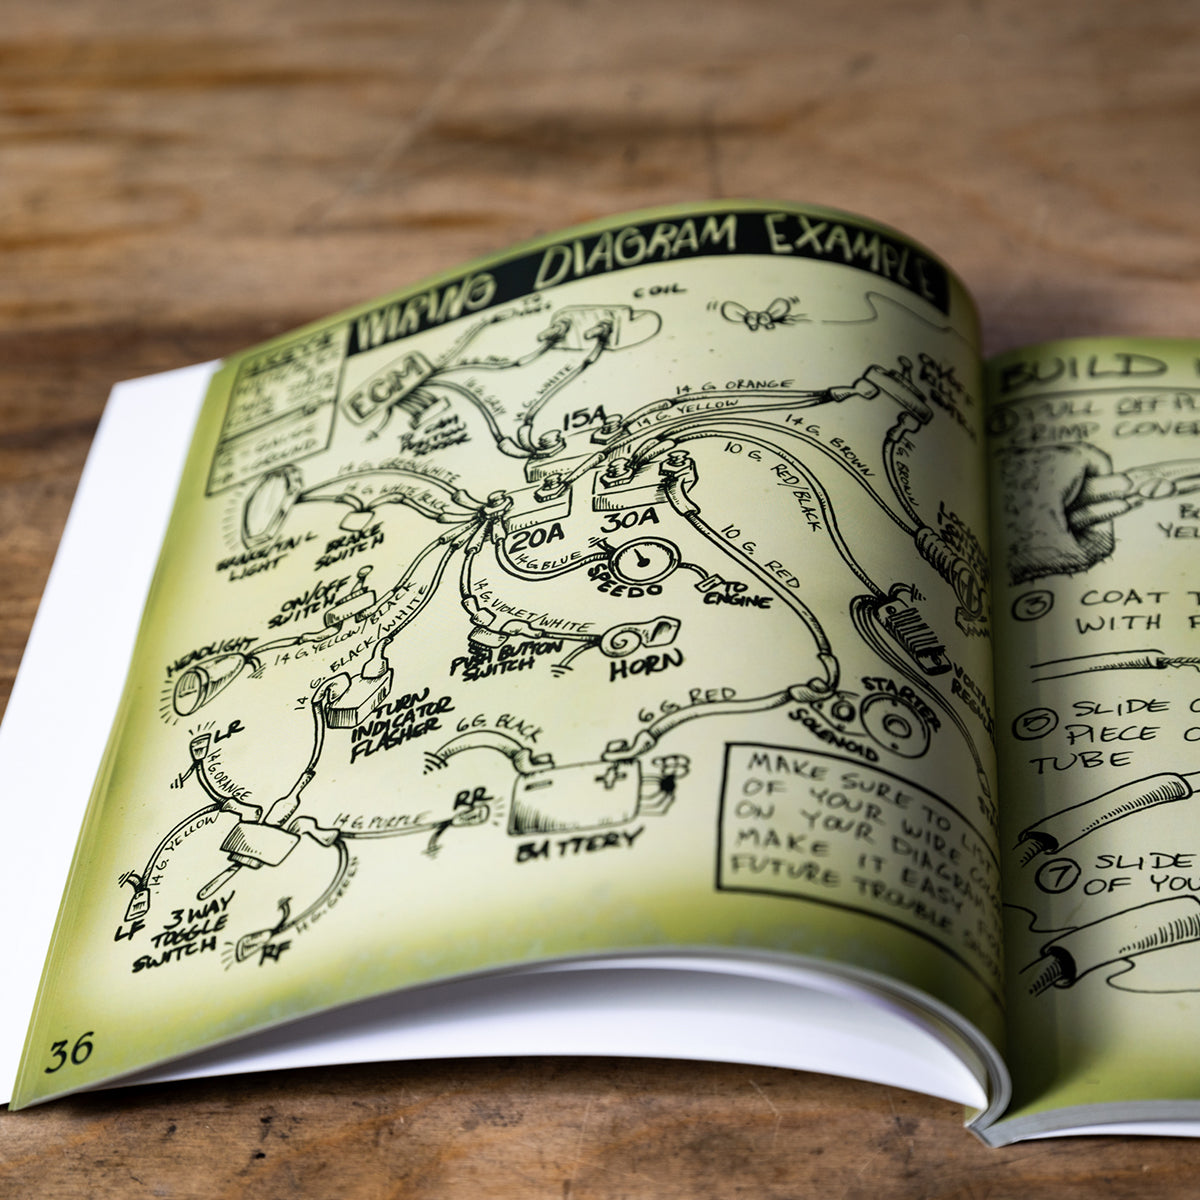 WIRING DIAGRAM EXAMPLE
COIL
ECM
14 G. GRAY
14 G. WHITE
TO CAM
POSITION
15A
14 G. ORANGE
14 G. YELLOW
ON/OFF
KILL
SWITCH
14 G. BROWN
14 G. BROWN
10 G. RED/BLACK
10 G. RED
20A
30A
14 G. GREEN/WHITE
14 G. WHITE/BLACK
BRAKE/TAIL
LIGHT
BRAKE
SWITCH
14 G. BLUE
SPEEDO
TO
ENGINE
ON/OFF
SWITCH
14 G. YELLOW/BLACK
14 G. BLACK/WHITE
14 G. VIOLET/WHITE
PUSH BUTTON
SWITCH
HORN
HEADLIGHT
TURN
INDICATOR
FLASHER
STARTER
SOLENOID
6 G. BLACK
6 G. RED
BATTERY
LR
14 G. ORANGE
14 G. YELLOW
14 G. PURPLE
RR
LF
3 WAY
TOGGLE
SWITCH
RF
MAKE SURE TO LIST
OF YOUR WIRE
ON YOUR DIAGRAM
MAKE IT EASY FOR
FUTURE TROUBLE
36
BUILD
1 PULL OFF
CRIMP COVER
3 COAT
WITH
5 SLIDE
PIECE
TUBE
7 SLIDE
OF YOU